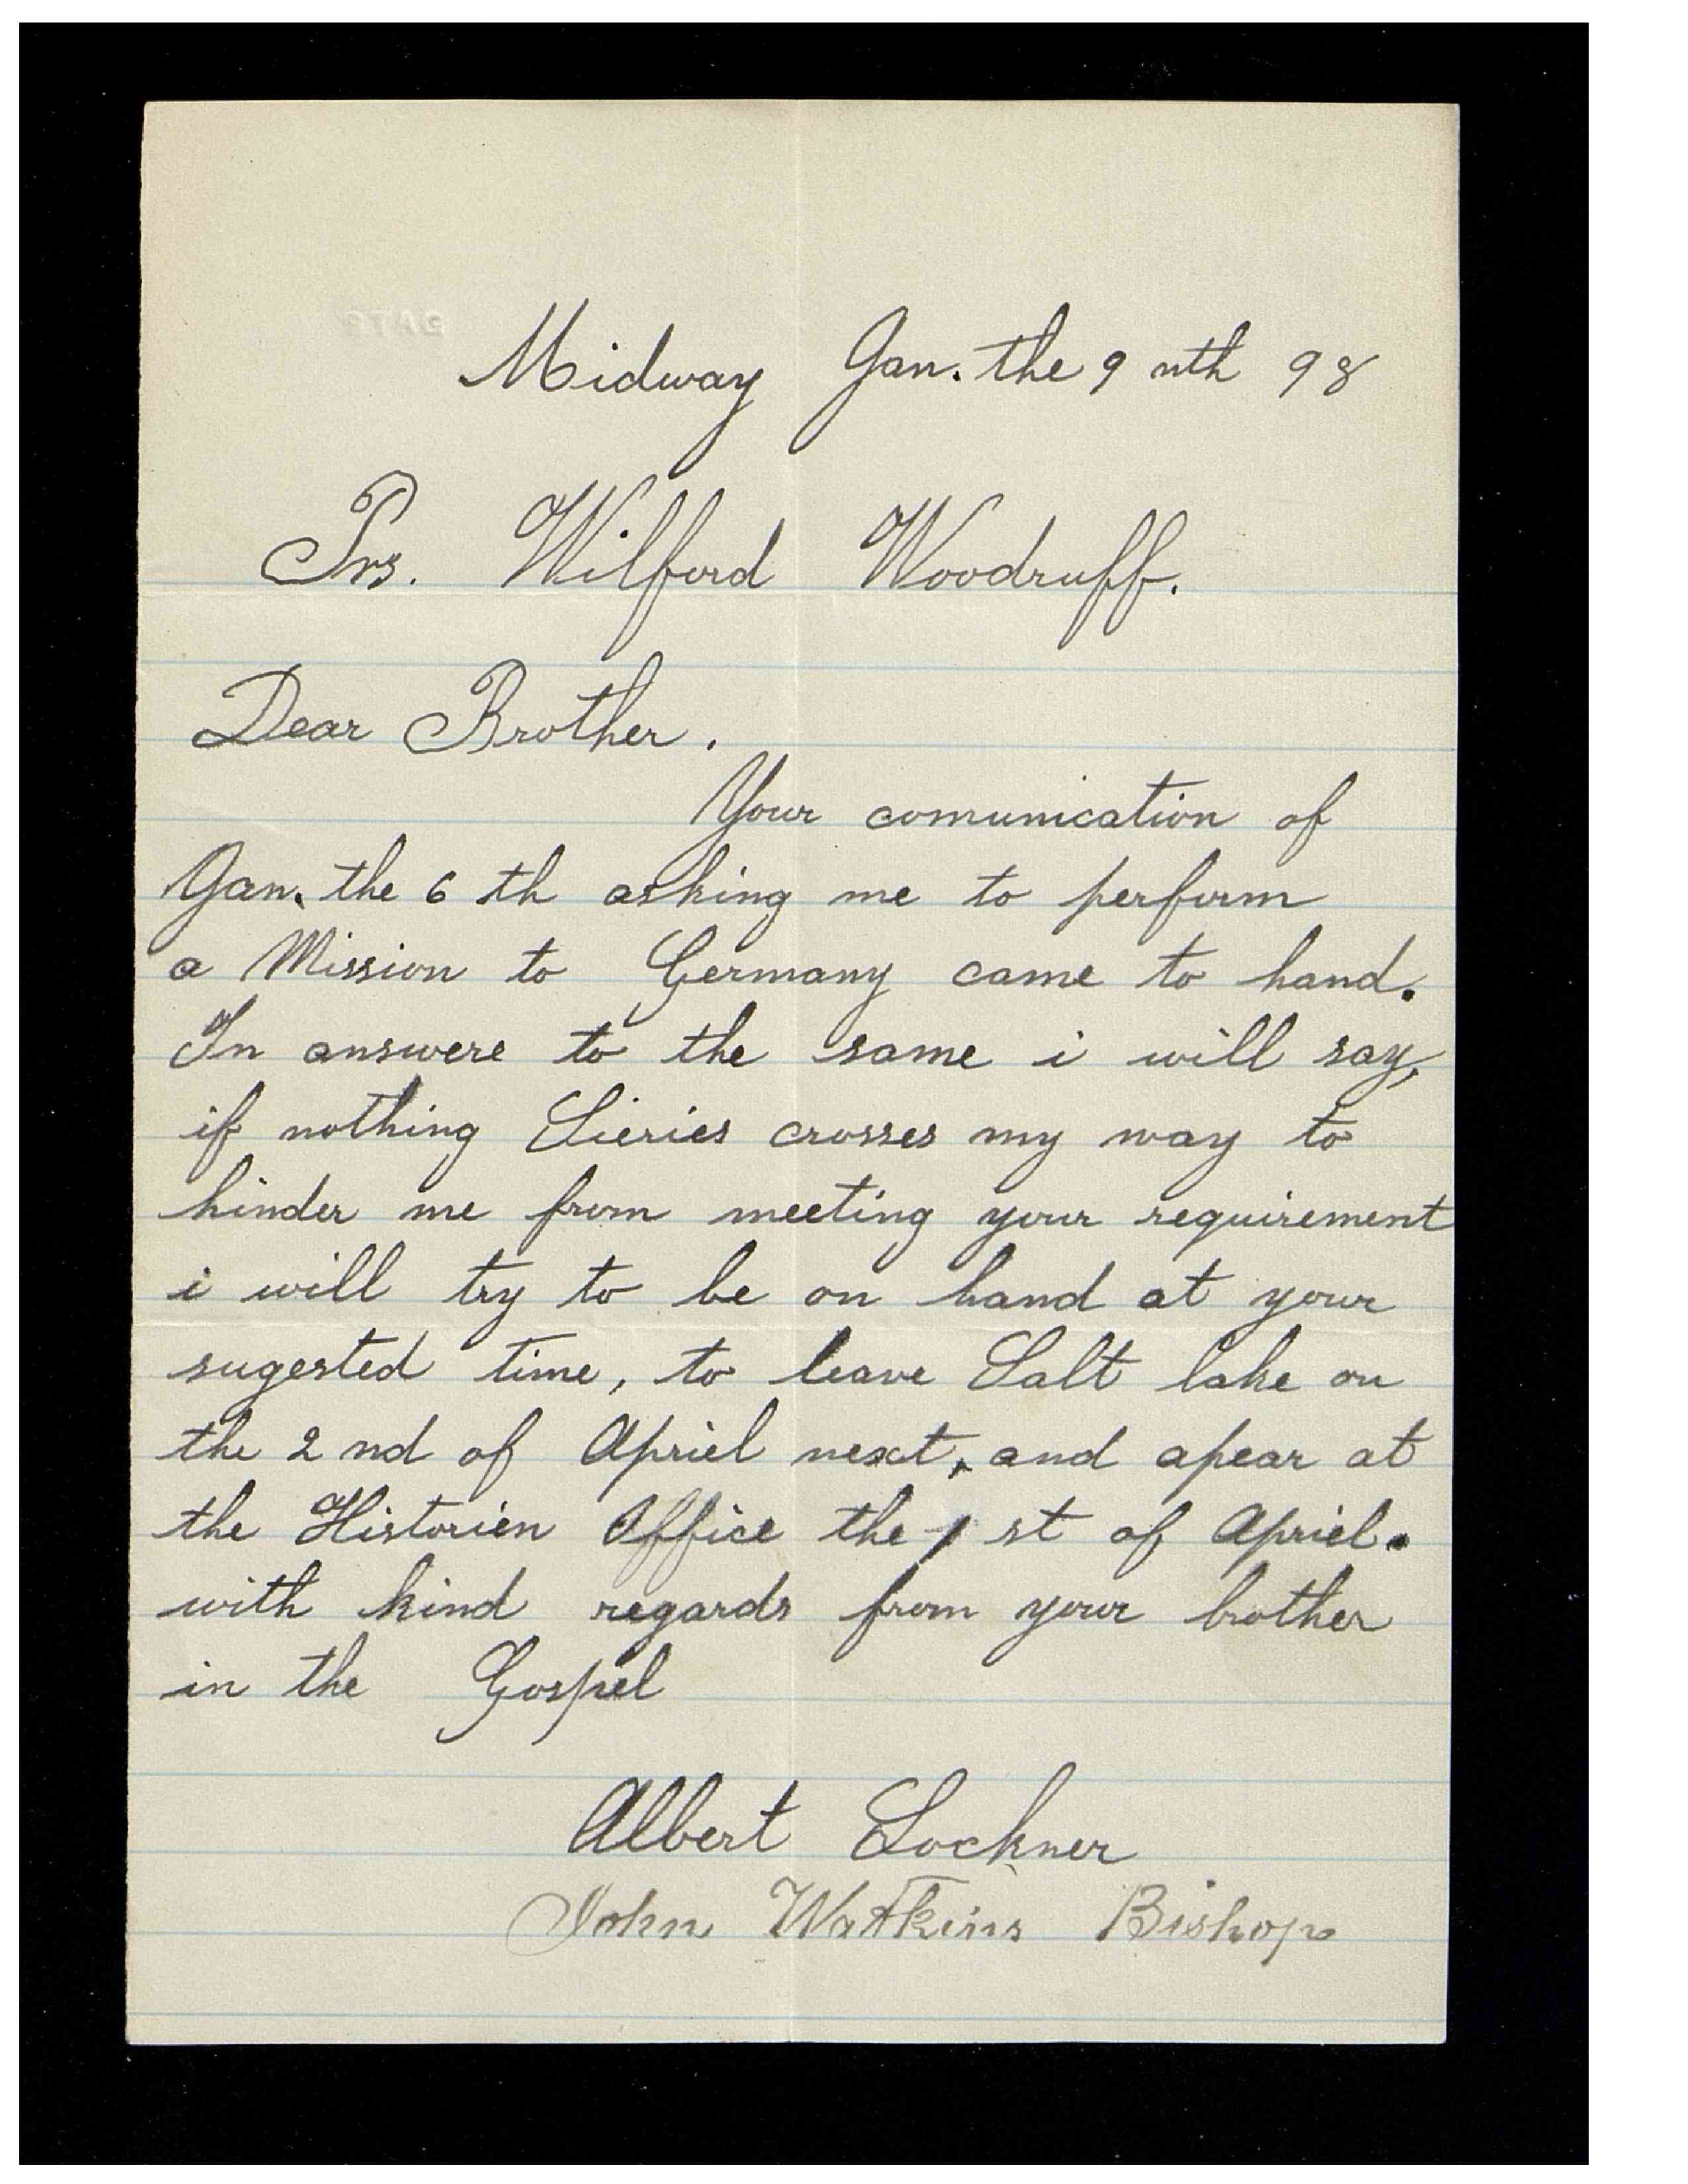 Midway Jan. the 9 nth 98
Prs. Wilford Woodruff.
Dear Brother.
Your comunication of
Jan. the 6 th asking me to perform
a Mission to Germany came to hand.
In answere to the same i will say,
if nothing Sieries crosses my way to
hinder me from meeting your requirement
i will try to be on hand at your
sugested time, to leave Salt lake on
the 2 nd of Apriel next, and apear at
the Historien Office the 1 st of Apriel.
with kind regards from your brother
in the Gospel
Albert Lockner
John Watkins Bishop